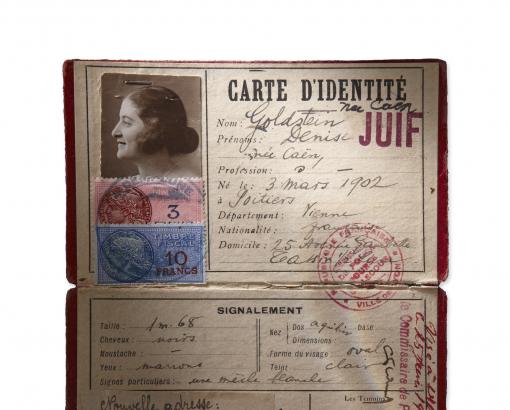 CARTE D'IDENTITÉ
née Caën
Nom: Goldstein
JUIF
Prénoms: Denise
née Caën,
Profession: –
Né le: 3 mars 1902
à Poitiers
Département: Vienne
Nationalité:
Domicile: 25 Avenue
3
TIMBRE
FISCAL
10
FRANCS
SIGNALEMENT
Taille: 1m.68
Cheveux: noirs
Moustache: –
Yeux: marrons
Signes particuliers: une mèche blanche
Nez
Dos aquilin base
Dimensions
Forme du visage oval
Teint clair
Nouvelle adresse:
Les Témoins
le Commissaire de